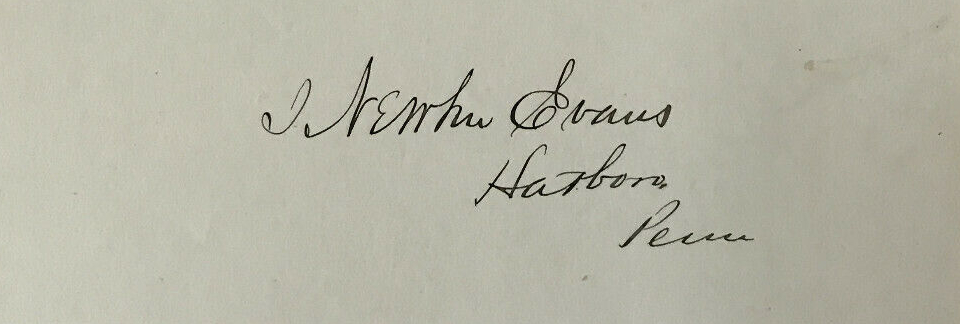 I Newton Evans
Hatboro.
Penn